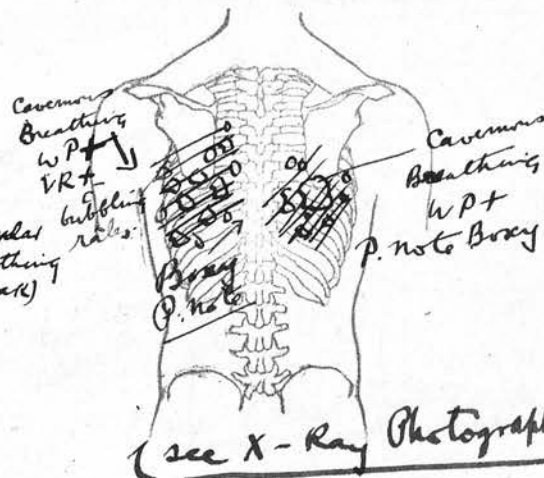 Cavernous
Breathing
WP+
VR+
bubbling
rales.
Boxy
P. note
Cavernous
Breathing
WP+
P. note Boxy
(see X-Ray Photograph